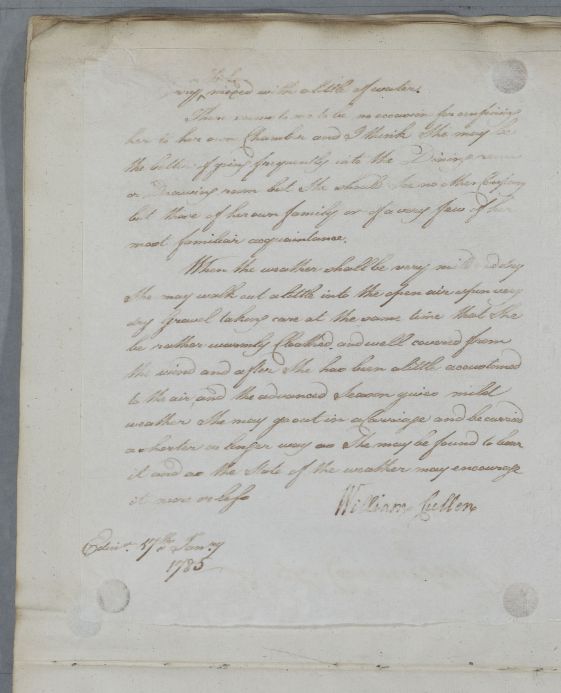 very mixed with a little of water.
There seems to me to be no occasion for confining
her to her own Chamber and I think She may be
the better of going frequently into the Dining room
or Drawing room but She should See no other Company
but those of her own family or of a very few of her
most familiar acquaintance.
When the weather shall be very mild and dry
She may walk out a little into the open air upon very
dry gravel taking care at the same time that She
be rather warmly Cloathed and well covered from
the wind and after She has been a little accustomed
to the air and the advanced Season gives mild
weather She may go out in a Carriage and be carried
a shorter or longer way as She may be found to bear
it and as the State of the weather may encourage
it more or less
William Cullen
Edinr. 17th Jany
1785